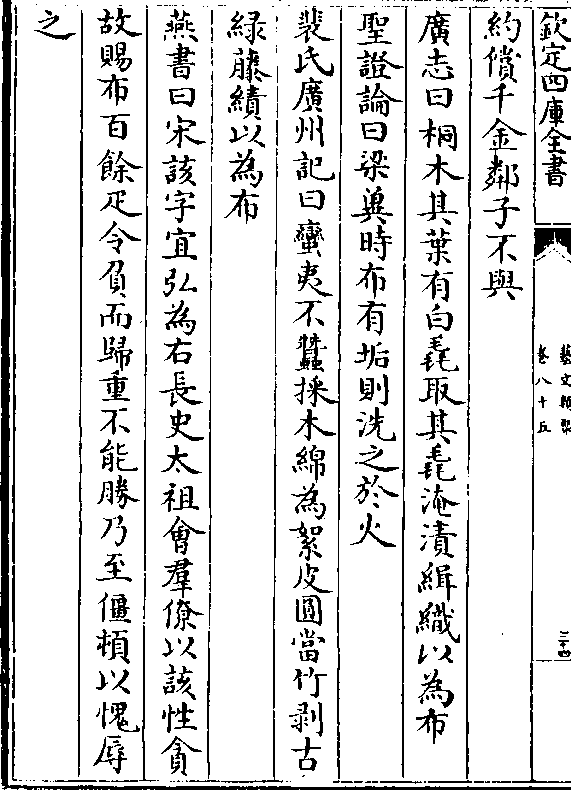 欽定四庫全書
藝文類聚
卷八十五
三十四
約償千金鄰子不與
廣志曰桐木其葉有白毳取其毳淹漬緝織以為布
聖證論曰梁冀時布有垢則洗之於火
裴氏廣州記曰蠻夷不蠶採木綿為絮皮圓當竹剥古
緑藤績以為布
燕書曰宋該字宣弘為右長史太祖會羣僚以該性貪
故賜布百餘疋令負而歸重不能勝乃至僵頓以愧辱
之